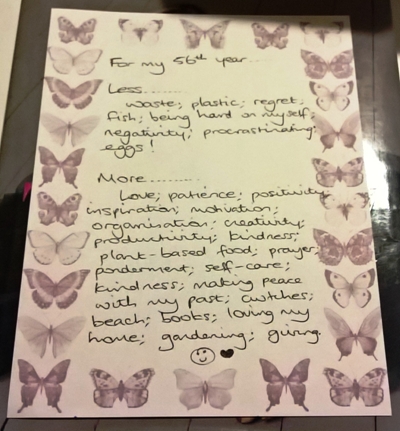 For my 56th year.....
Less..........
waste; plastic; regret;
fish; being hard on myself;
negativity; procrastinating;
eggs!
More..........
Love; patience; positivity
inspiration; motivation;
organisation; creativity;
productivity; kindness;
plant-based food; prayer;
ponderment; self-care;
kindness; making peace
with my past; cwtches;
beach; books; loving my
home; gardening; giving.